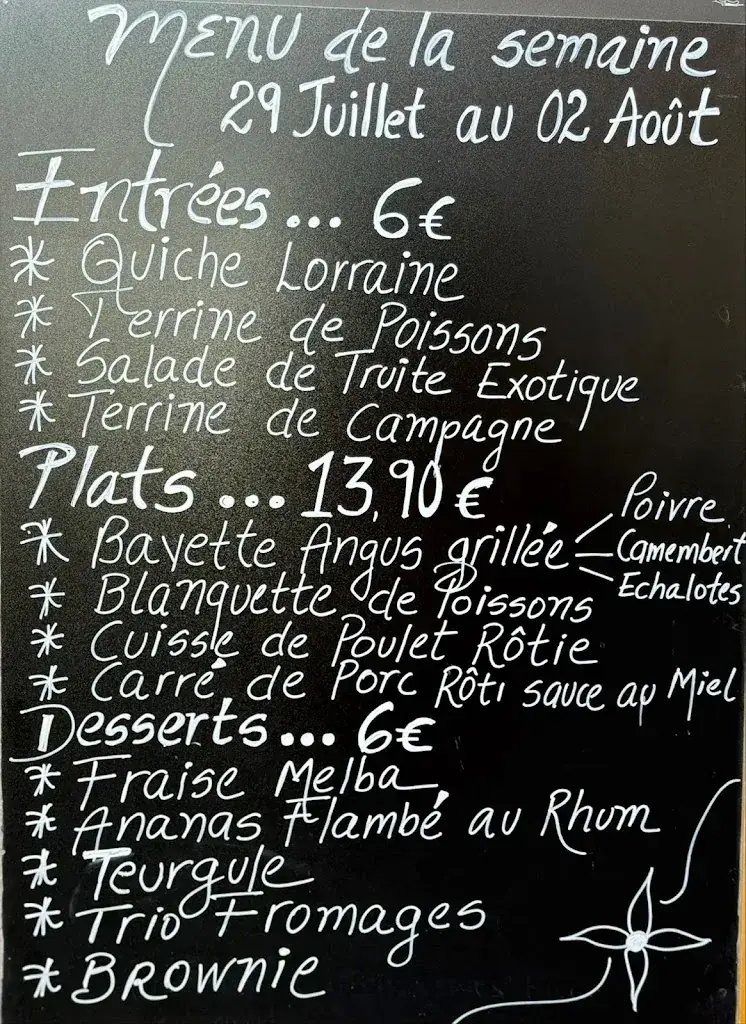 Menu de la semaine
29 Juillet au 02 Août
Entrées ... 6€
* Quiche Lorraine
* Terrine de Poissons
* Salade de Truite Exotique
* Terrine de Campagne
Plats ... 13,90€
* Bavette Angus grillée
Poivre
Camembert
Echalotes
* Blanquette de Poissons
* Cuisse de Poulet Rôtie
* Carré de Porc Rôti sauce au Miel
Desserts ... 6€
* Fraise Melba
* Ananas Flambé au Rhum
* Teurgule
* Trio Fromages
* Brownie